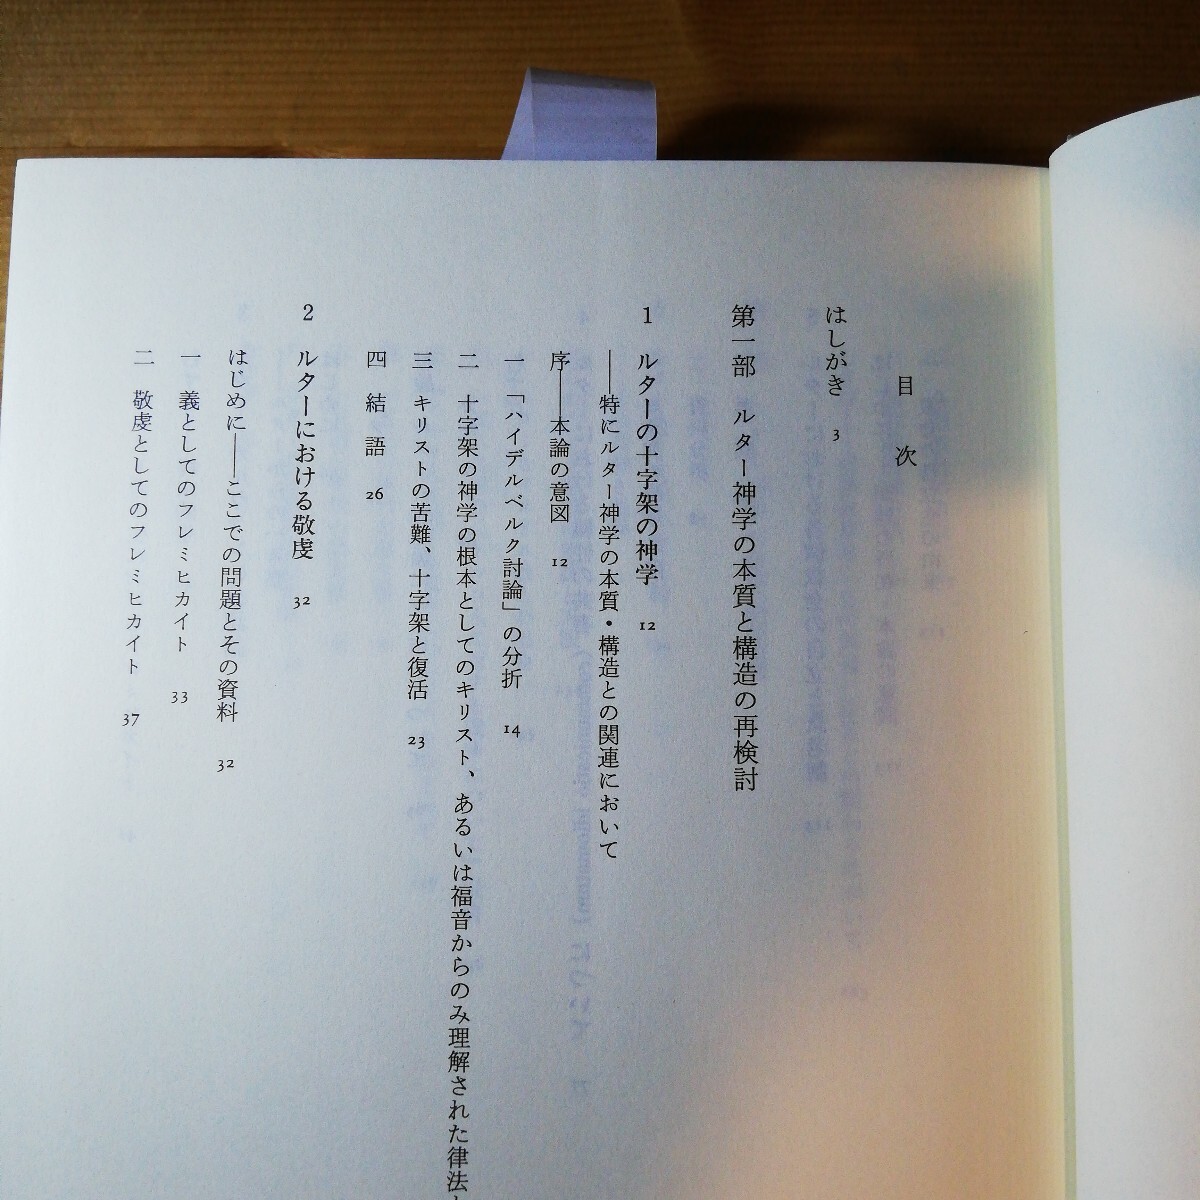 目次
はしがき 3
第一部 ルター神学の本質と構造の再検討
1 ルターの十字架の神学 12
――特にルター神学の本質・構造との関連において
序――本論の意図 12
一 「ハイデルベルク討論」の分折 14
二 十字架の神学の根本としてのキリスト、あるいは福音からのみ理解された律法
三 キリストの苦難、十字架と復活 23
四 結語 26
2 ルターにおける敬虔 32
はじめに――ここでの問題とその資料 32
一 義としてのフレミヒカイト 33
二 敬虔としてのフレミヒカイト 37